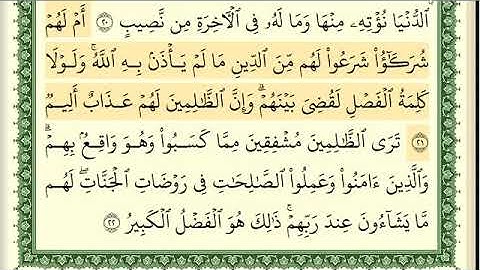 ٱلدُّنْيَا نُؤْتِهِۦ مِنْهَا وَمَا لَهُۥ فِى ٱلْـَٔاخِرَةِ مِن نَّصِيبٍ ٢٠ أَمْ لَهُمْ
شُرَكَـٰٓؤُا۟ شَرَعُوا۟ لَهُم مِّنَ ٱلدِّينِ مَا لَمْ يَأْذَنۢ بِهِ ٱللَّهُ ۚ وَلَوْلَا
كَلِمَةُ ٱلْفَصْلِ لَقُضِىَ بَيْنَهُمْ ۗ وَإِنَّ ٱلظَّـٰلِمِينَ لَهُمْ عَذَابٌ أَلِيمٌ
٢١ تَرَى ٱلظَّـٰلِمِينَ مُشْفِقِينَ مِمَّا كَسَبُوا۟ وَهُوَ وَاقِعٌۢ بِهِمْ ۗ
وَٱلَّذِينَ ءَامَنُوا۟ وَعَمِلُوا۟ ٱلصَّـٰلِحَـٰتِ فِى رَوْضَاتِ ٱلْجَنَّاتِ ۖ لَهُم
مَّا يَشَآءُونَ عِندَ رَبِّهِمْ ۚ ذَٰلِكَ هُوَ ٱلْفَضْلُ ٱلْكَبِيرُ ٢٢